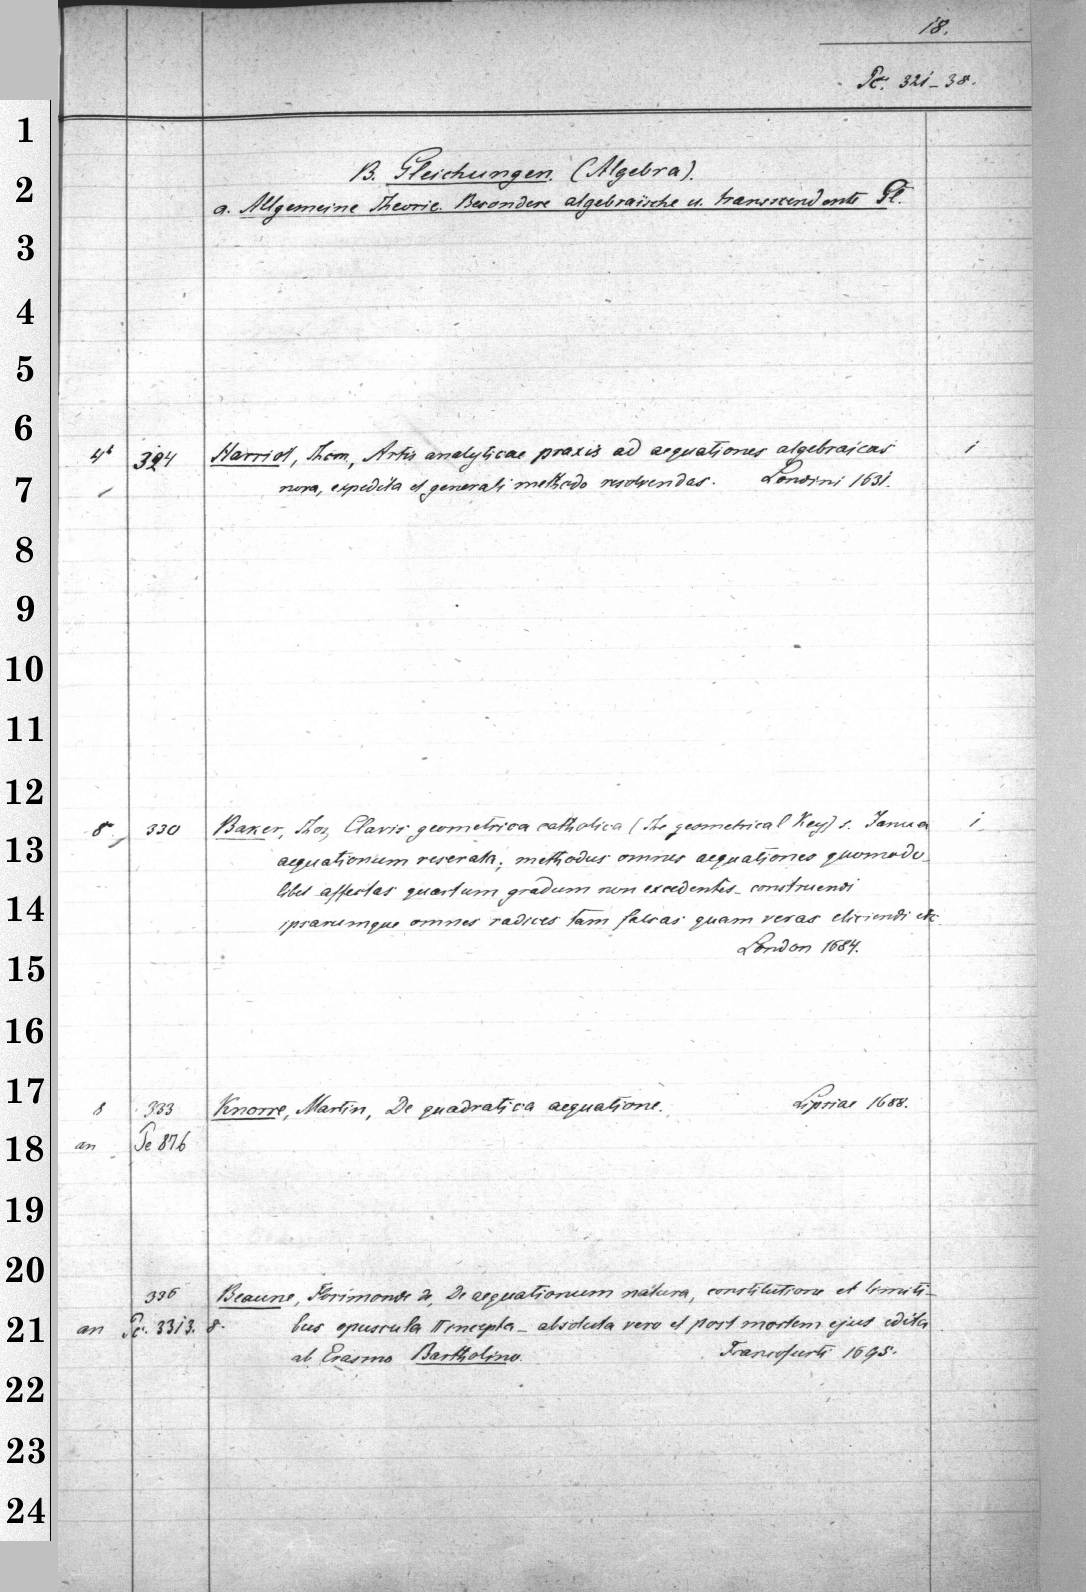 18.
Pc. 321-38.
1
2
3
4
5
6
7
8
9
10
11
12
13
14
15
16
17
18
19
20
21
22
23
24
B. Gleichungen. (Algebra).
a. Allgemeine Theorie. Besondere algebraische u. transscendente Gl.
4° 324 Harriot, Thom., Artis analyticae praxis ad aequationes algebraicas 1
nova, expedita et generali methodo resolvendas. Londini 1631.
8° 330 Baker, Thos, Clavis geometrica catholica (The geometrical Key) s. Janua 1
aequationum reserata; methodus omnes aequationes quomodo-
libet affectas quartum gradum non excedentes construendi
ipsarumque omnes radices tam falsas quam veras eliciendi etc.
London 1684.
8 333 Knorre, Martin, De quadratica aequatione. Lipsiae 1688.
an Pe 876
336 Beaune, Florimonde de, De aequationum natura, constitutione et limiti-
an Pc. 3313. 8. bus opuscula II incepta - absoluta vero et post mortem ejus edita
ab Erasmo Bartholino. Francofurti 1695.